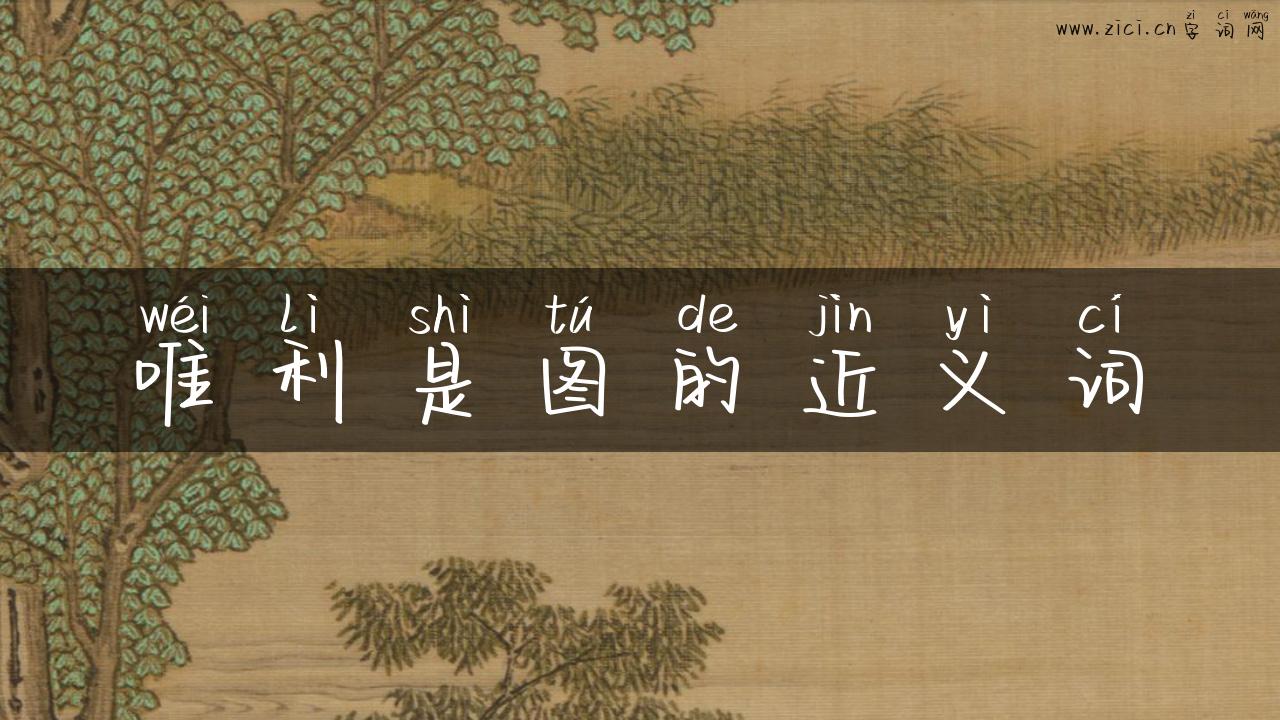 zì cí wǎng
www.zici.cn字词网
wéi lì shì tú de jìn yì cí
唯利是图的近义词